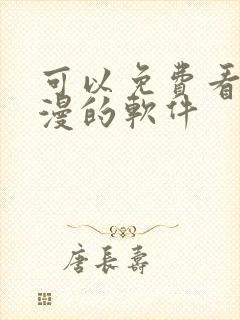 可以免費看
漫的軟件
唐長壽